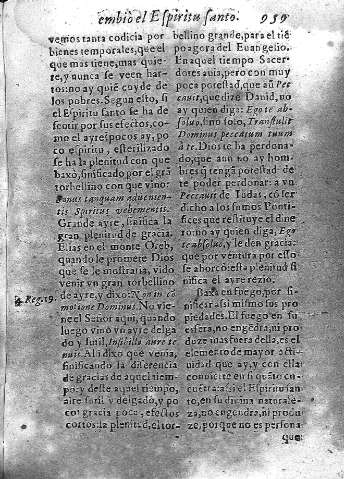 embio el Espiritu santo. 959
vemos tanta codicia por
bienes temporales, que el
que mas tiene, mas quie-
re, y nunca se veen har-
tos: no ay quié cuyde de
los pobres. Segun esto, si
el Espiritu santo se ha de
sentir por sus efectos, co-
mo el ayre: pocos ay, po
co espiritu, esterilizado
se ha la plenitud con que
baxò, sinificado por el grã
torbellino con que vino:
Sonus tanquam aduenien-
tis Spiritus vehementis.
Grande ayre, sinifica la
gran plenitud de gracia.
Elias en el monte Oreb,
quando le promete Dios
que se le mostraria, vido
venir vn gran torbellino
4. Reg. 19.
de ayre, y dixo: Non in co
motione Dominus. No vie-
ne el Señor aqui, quando
luego vino vn ayre delga
do y sutil, In sibilo aure te
nuis. Ali dixo que venia,
sinificando la diferencia
de gracias de aquel tiem-
po, y deste aquel tiempo,
aire sotil y delgado, y po
co: gracia poca, efectos
cortos: la plenitud, el tor-
bellino grande, para el tié
po agora del Euangelio.
En aquel tiempo Sacer-
dotes auia, pero con muy
poca potestad, que aũ Pec
caui, que dize Dauid, no
ay quien diga: Ego te ab-
soluo, Uno solo, Transtulit
Dominus peccatum tuum
à te. Dios te ha perdona-
do, que aun no ay hom-
bres q̃ tengã potestad de
te poder perdonar: a vn
Peccaui de Iudas, có ser
dicho a los sumos Ponti-
fices que restituye el dine
ro, no ay quien diga, Ego
te absoluo, y le den gracia:
que por ventura por esso
se ahorcò: esta plenitud si
nifica el ayre rezio.
en fuego, por si-
nificar assi mismo sus pro
piedades. El fuego en su
esfera, no engẽdra, ni pro
duze mas fuera della, es el
elemento de mayor acti-
uidad que ay, y con ella
conuierte en si quãto en-
cuẽtra: assi el Espiritu san
to, en su diuina naturale-
za, no engendra, ni produ
ze, porque no es persona
que